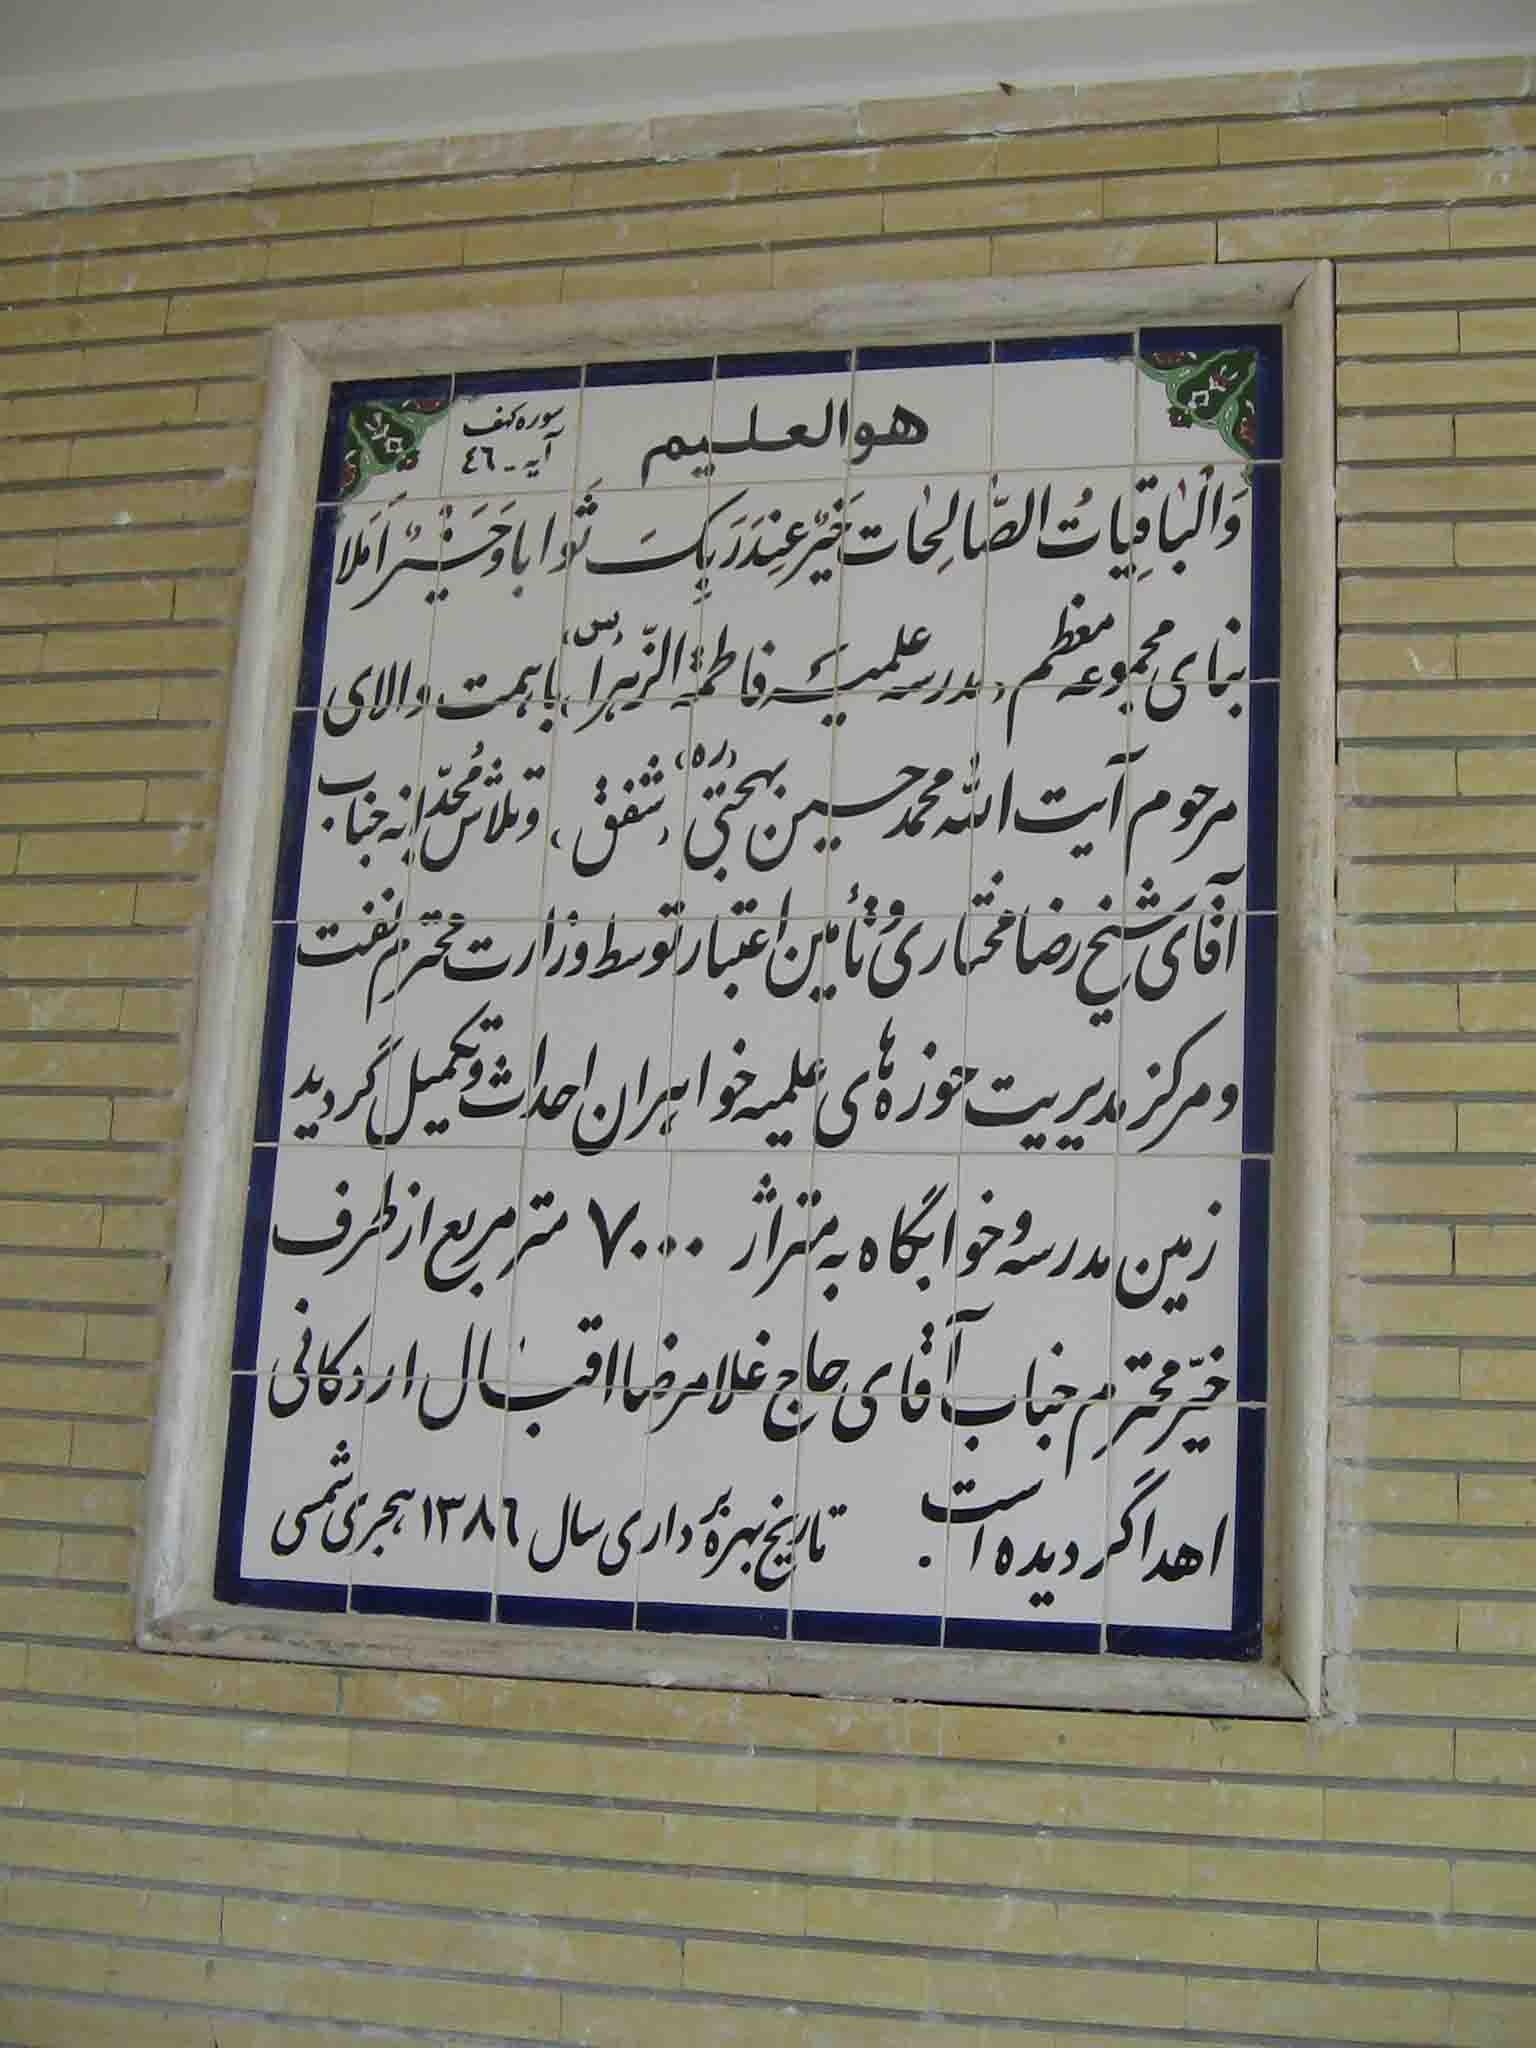 هو العلیم
سوره کهف
آیه - ٤٦
وَالْبٰاقِیٰاتُ الصّٰالِحٰات خَیْرٌ عِنْدَ رَبِّکَ ثَوٰابا وَ خَیْرٌ اَمَلا
بنای مجموعه معظم «مدرسه علمیّه فاطمة الزّهرا(س)» با همت والای
مرحوم آیت الله محمد حسین بهجتی(ره) «شفق» و تلاش مُجدّانه جناب
آقای شیخ رضا مختاری و تأمین اعتبار توسط وزارت محترم نفت
و مرکز مدیریت حوزه های علمیه خواهران احداث و تکمیل گردید
زمین مدرسه و خوابگاه به متراژ ۷۰۰۰ متر مربع از طرف
خیّر محترم جناب آقای حاج غلامرضا اقبال اردکانی
اهدا گردیده است. تاریخ بهره برداری سال ۱۳۸٦ هجری شمسی